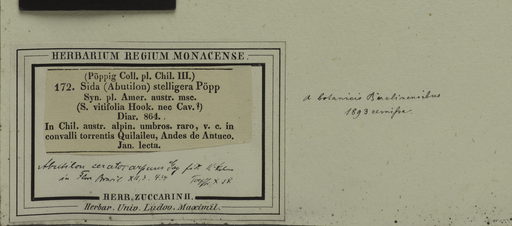 HERBARIUM REGIUM MONACENSE.
(Pöppig Coll. pl. Chil. III.)
172. Sida (Abutilon) stelligera Pöpp
Syn. pl. Amer. austr. msc.
(S. vitifolia Hook. nec Cav.?)
Diar. 864.
In Chil. austr. alpin. umbros. raro, v. c. in
convalli torrentis Quilaileu, Andes de Antuco.
Jan. lecta.
Abutilon ceratocarpum
in Flor. Brasil. XII, 3. 434
HERB. ZUCCARINII.
Herbar. Univ. Ludov. Maximil.
a botanicis Berolinensibus
1893 remissa.